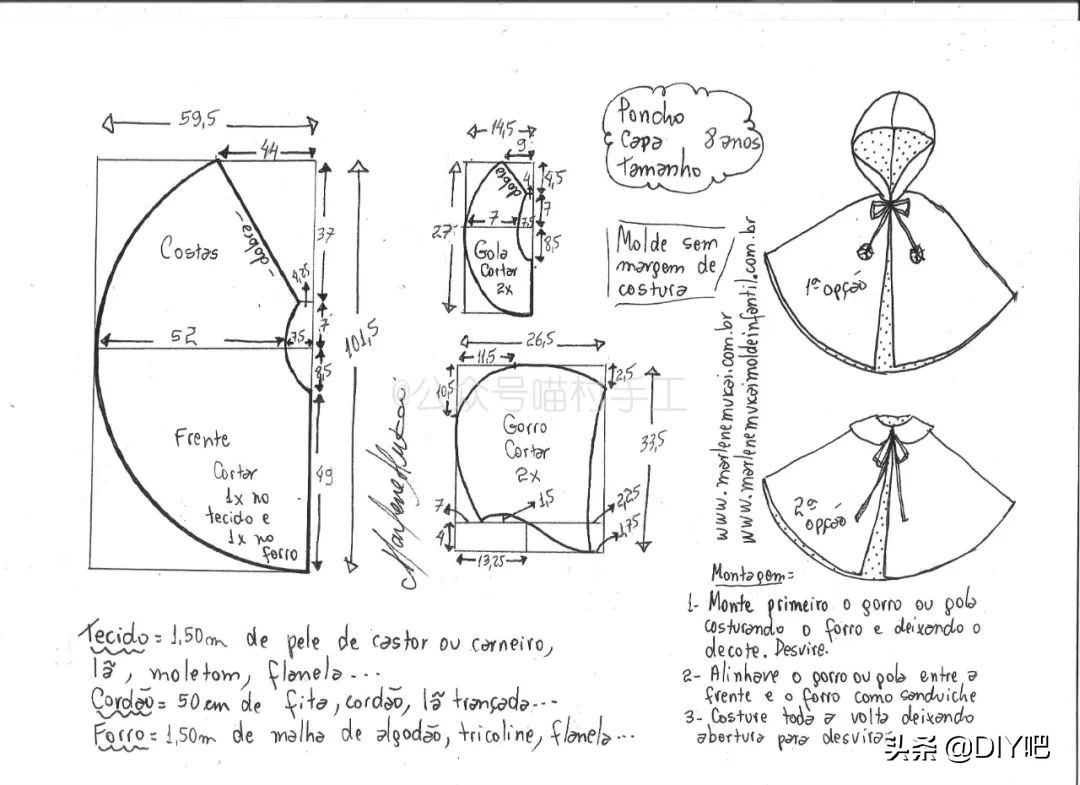 59,5
44
Costas
-dobra-
37
4,25
7
7,5
52
8,5
101,5
Frente
Cortar
1x no
tecido e
1x no
forro
49
14,5
9
4
dobra
4,5
7
7
7,5
27
8,5
Gola
Cortar
2x
26,5
11,5
10,5
2,5
Gorro
Cortar
2x
33,5
7
1,5
2,25
4
1,75
13,25
@公众号喵村手工
Poncho
Capa 8 anos
Tamanho
Molde sem
margem de
costura
www.marlenemukai.com.br
www.marlenemukaimoldeinfantil.com.br
1ª opção
2ª
opção
Tecido = 1,50m de pele de castor ou carneiro,
lã, moletom, flanela...
Cordão = 50 cm de fita, cordão, lã trançada...
Forro = 1,50m de malha de algodão, tricoline, flanela...
Montagem =
1- Monte primeiro o gorro ou gola
costurando o forro e deixando o
decote. Desvire.
2- Alinhave o gorro ou gola entre a
frente e o forro como sanduiche
3- Costure toda a volta deixando
abertura para desvirar
头条 @DIY吧